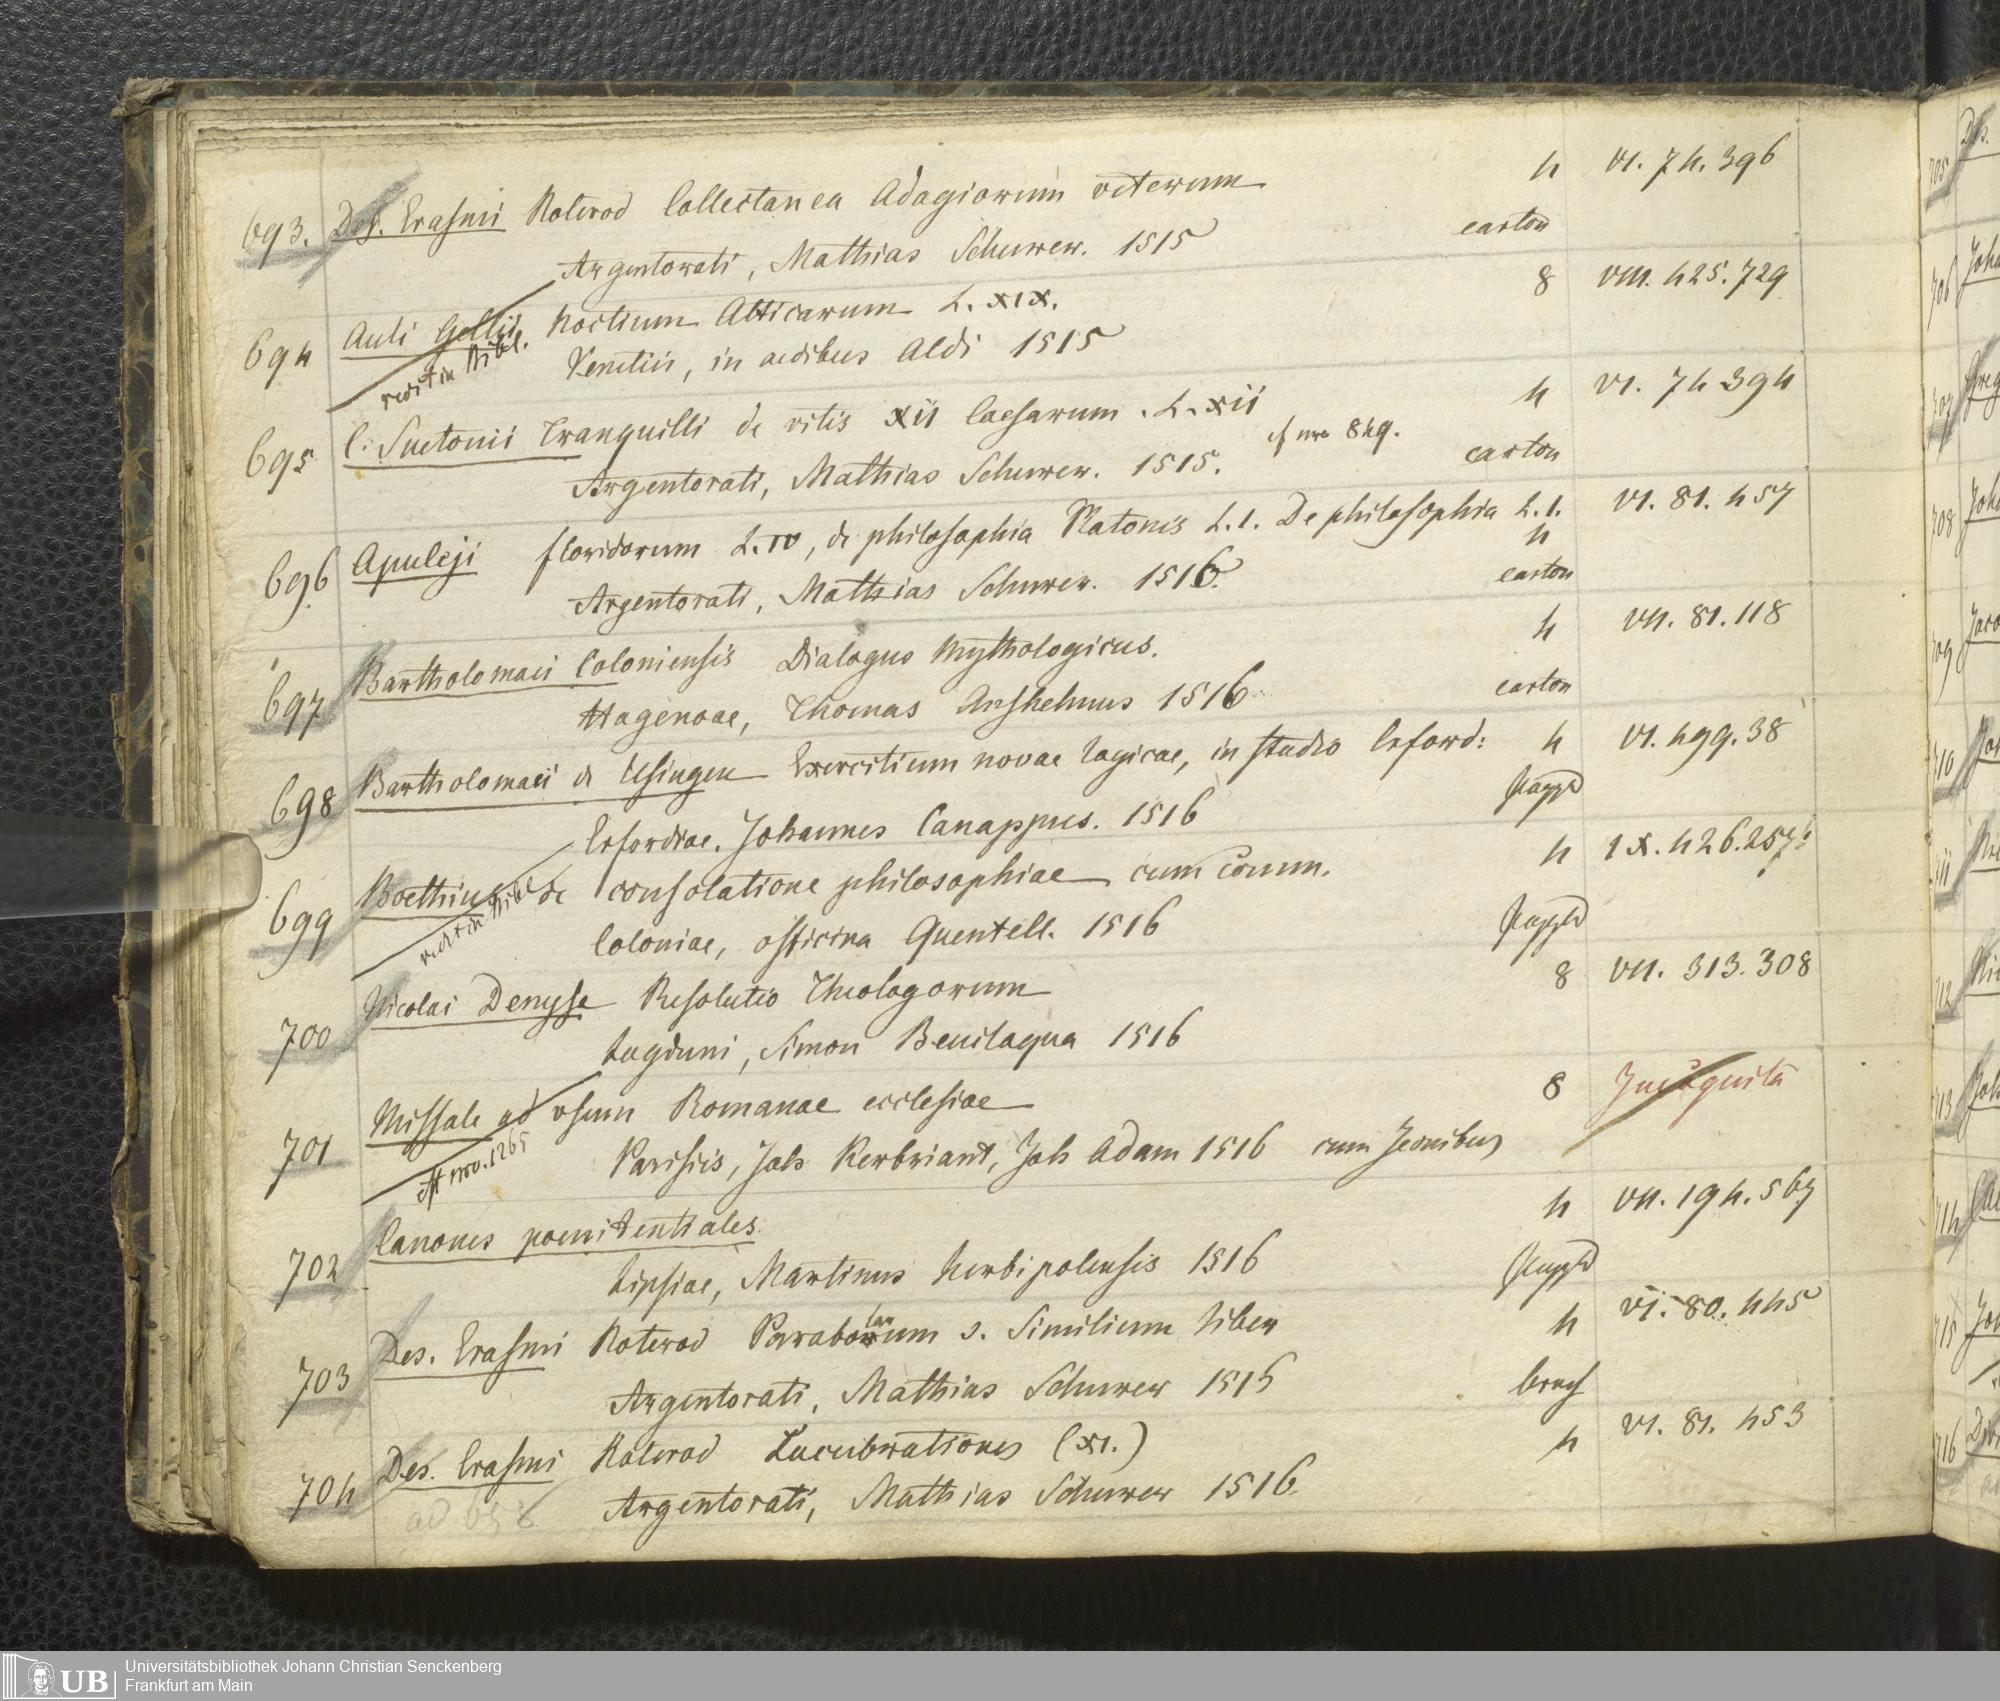 693. Des. Erasmi Roterod Collectanea Adagiorum veterum 4 VI. 74. 396
Argentorati, Mathias Schurer. 1515 carton
694 Auli Gellii Noctium Atticarum L. XIX. 8 VIII. 425. 729
redit in Bibl.
Venetiis, in aedibus Aldi 1515
695 C. Suetonii Tranquilli de vitis XII Caesarum. L. XII 4 VI. 74 394
Argentorati, Mathias Schurer. 1515. cf nro 849. carton
696 Apuleji floridorum L. IV, de philosophia Platonis L. I. De philosophia L. I. VI. 81. 457
4
Argentorati, Mathias Schurer. 1516. carton
697 Bartholomaei Coloniensis Dialogus Mythologicus. 4 VII. 81. 118
Hagenoae, Thomas Anshelmus 1516 carton
698 Bartholomaei de Usingen Exercitium novae logicae, in studio Erford: 4 VI. 499. 38
Erfordiae. Johannes Canappus. 1516 Pappd
699 Boethius de consolatione philosophiae cum Comm. 4 IX. 426. 257
redit in Bibl
Coloniae, officina Quentell. 1516 Pappd
700 Nicolai Denyse Resolutio Theologorum 8 VII. 313. 308
Lugduni, Simon Beuilaqua 1516
701 Missale ad usum Romanae ecclesiae 8
est nro. 1265
Parisiis, Joh Kerbriant, Joh Adam 1516 cum Iconibus
702 Canones poenitentiales. 4 VII. 194. 567
Lipsiae, Martinus Herbipolensis 1516 Pappd
703 Des. Erasmi Roterod Parabolarum s. Similium liber 4 VI. 80. 445
Argentorati, Mathias Schurer 1516 broch
704 Des. Erasmi Roterod Lucubrationes (XI.) 4 VI. 81. 453
Argentorati, Mathias Schurer 1516.
UB
Universitätsbibliothek Johann Christian Senckenberg
Frankfurt am Main